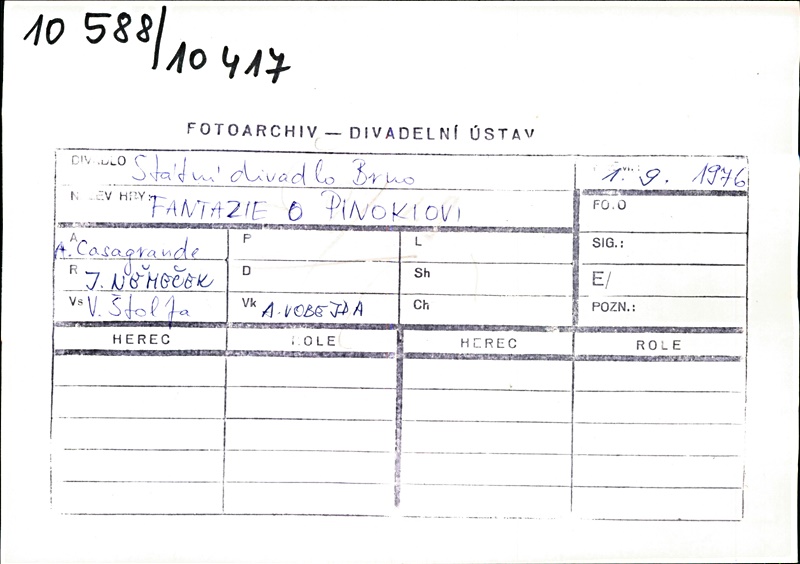 10 588/10 417
FOTOARCHIV — DIVADELNÍ ÚSTAV
DIVADLO Státní divadlo Brno
1. 9. 1976
NÁZEV HRY: FANTAZIE O PINOKIOVI
FOTO
A A. Casagrande
P
L
SIG.:
R J. NĚMEČEK
D
Sh
E/
Vs V. Štolfa
Vk A. VOBEJDA
Ch
POZN.:
HEREC ROLE HEREC ROLE